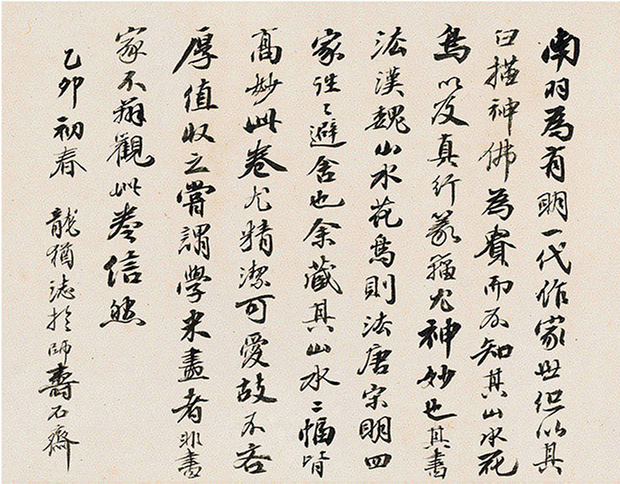 南羽為有明一代作家世但以其
白描神佛為貴而不知其山水花
鳥以及真行篆籀尤神妙也其書
法漢魏山水花鳥則法唐宋明四
家往〻避舍也余藏其山水二幅皆
高妙此卷尤精潔可愛故不吝
厚值收之嘗謂學者非畫
家不觀此卷信然
乙卯初春 龍誌於師壽石齋